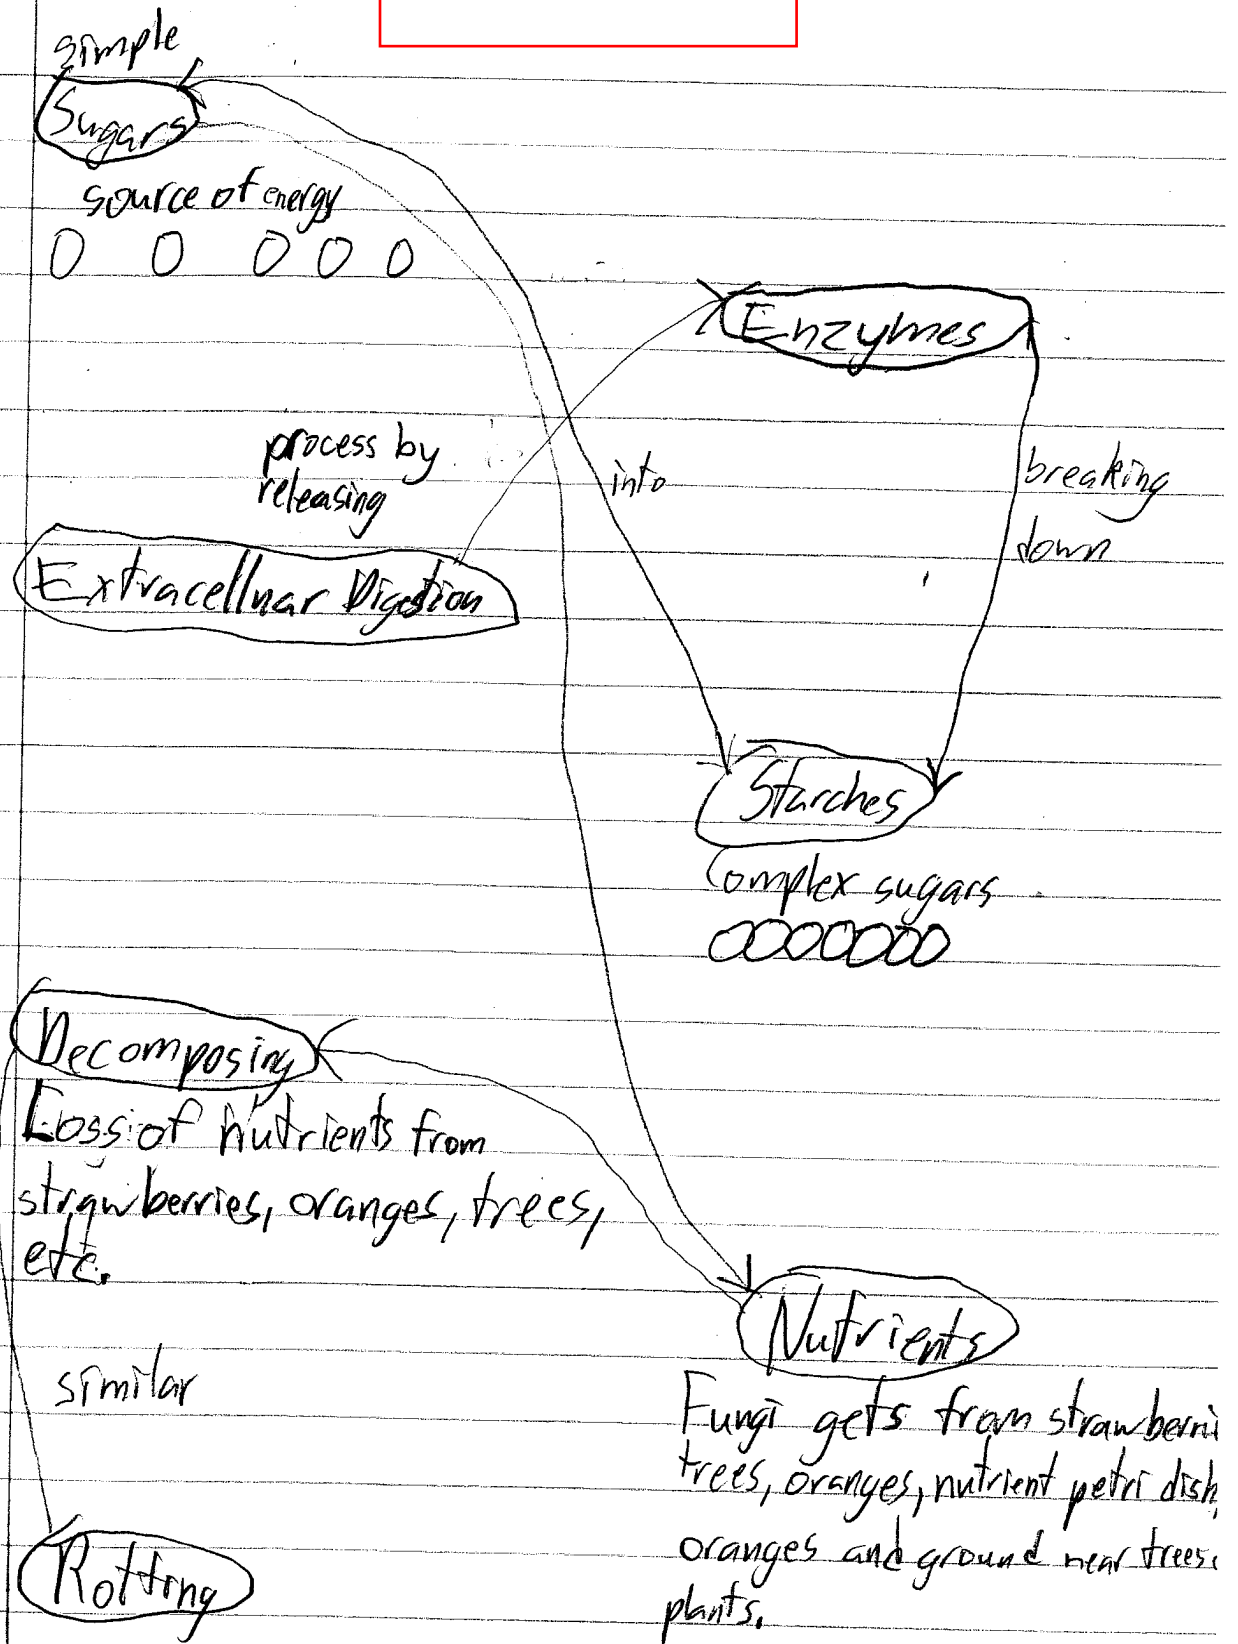 simple
Sugars
source of energy
Enzymes
process by
releasing
into
breaking
down
Extracelluar Digestion
Starches
Complex sugars
Decomposing
Loss of nutrients from
strawberries, oranges, trees,
etc.
Nutrients
similar
Fungi gets from strawberri
trees, oranges, nutrient petri dish,
oranges and ground near trees.
plants.
Rotting